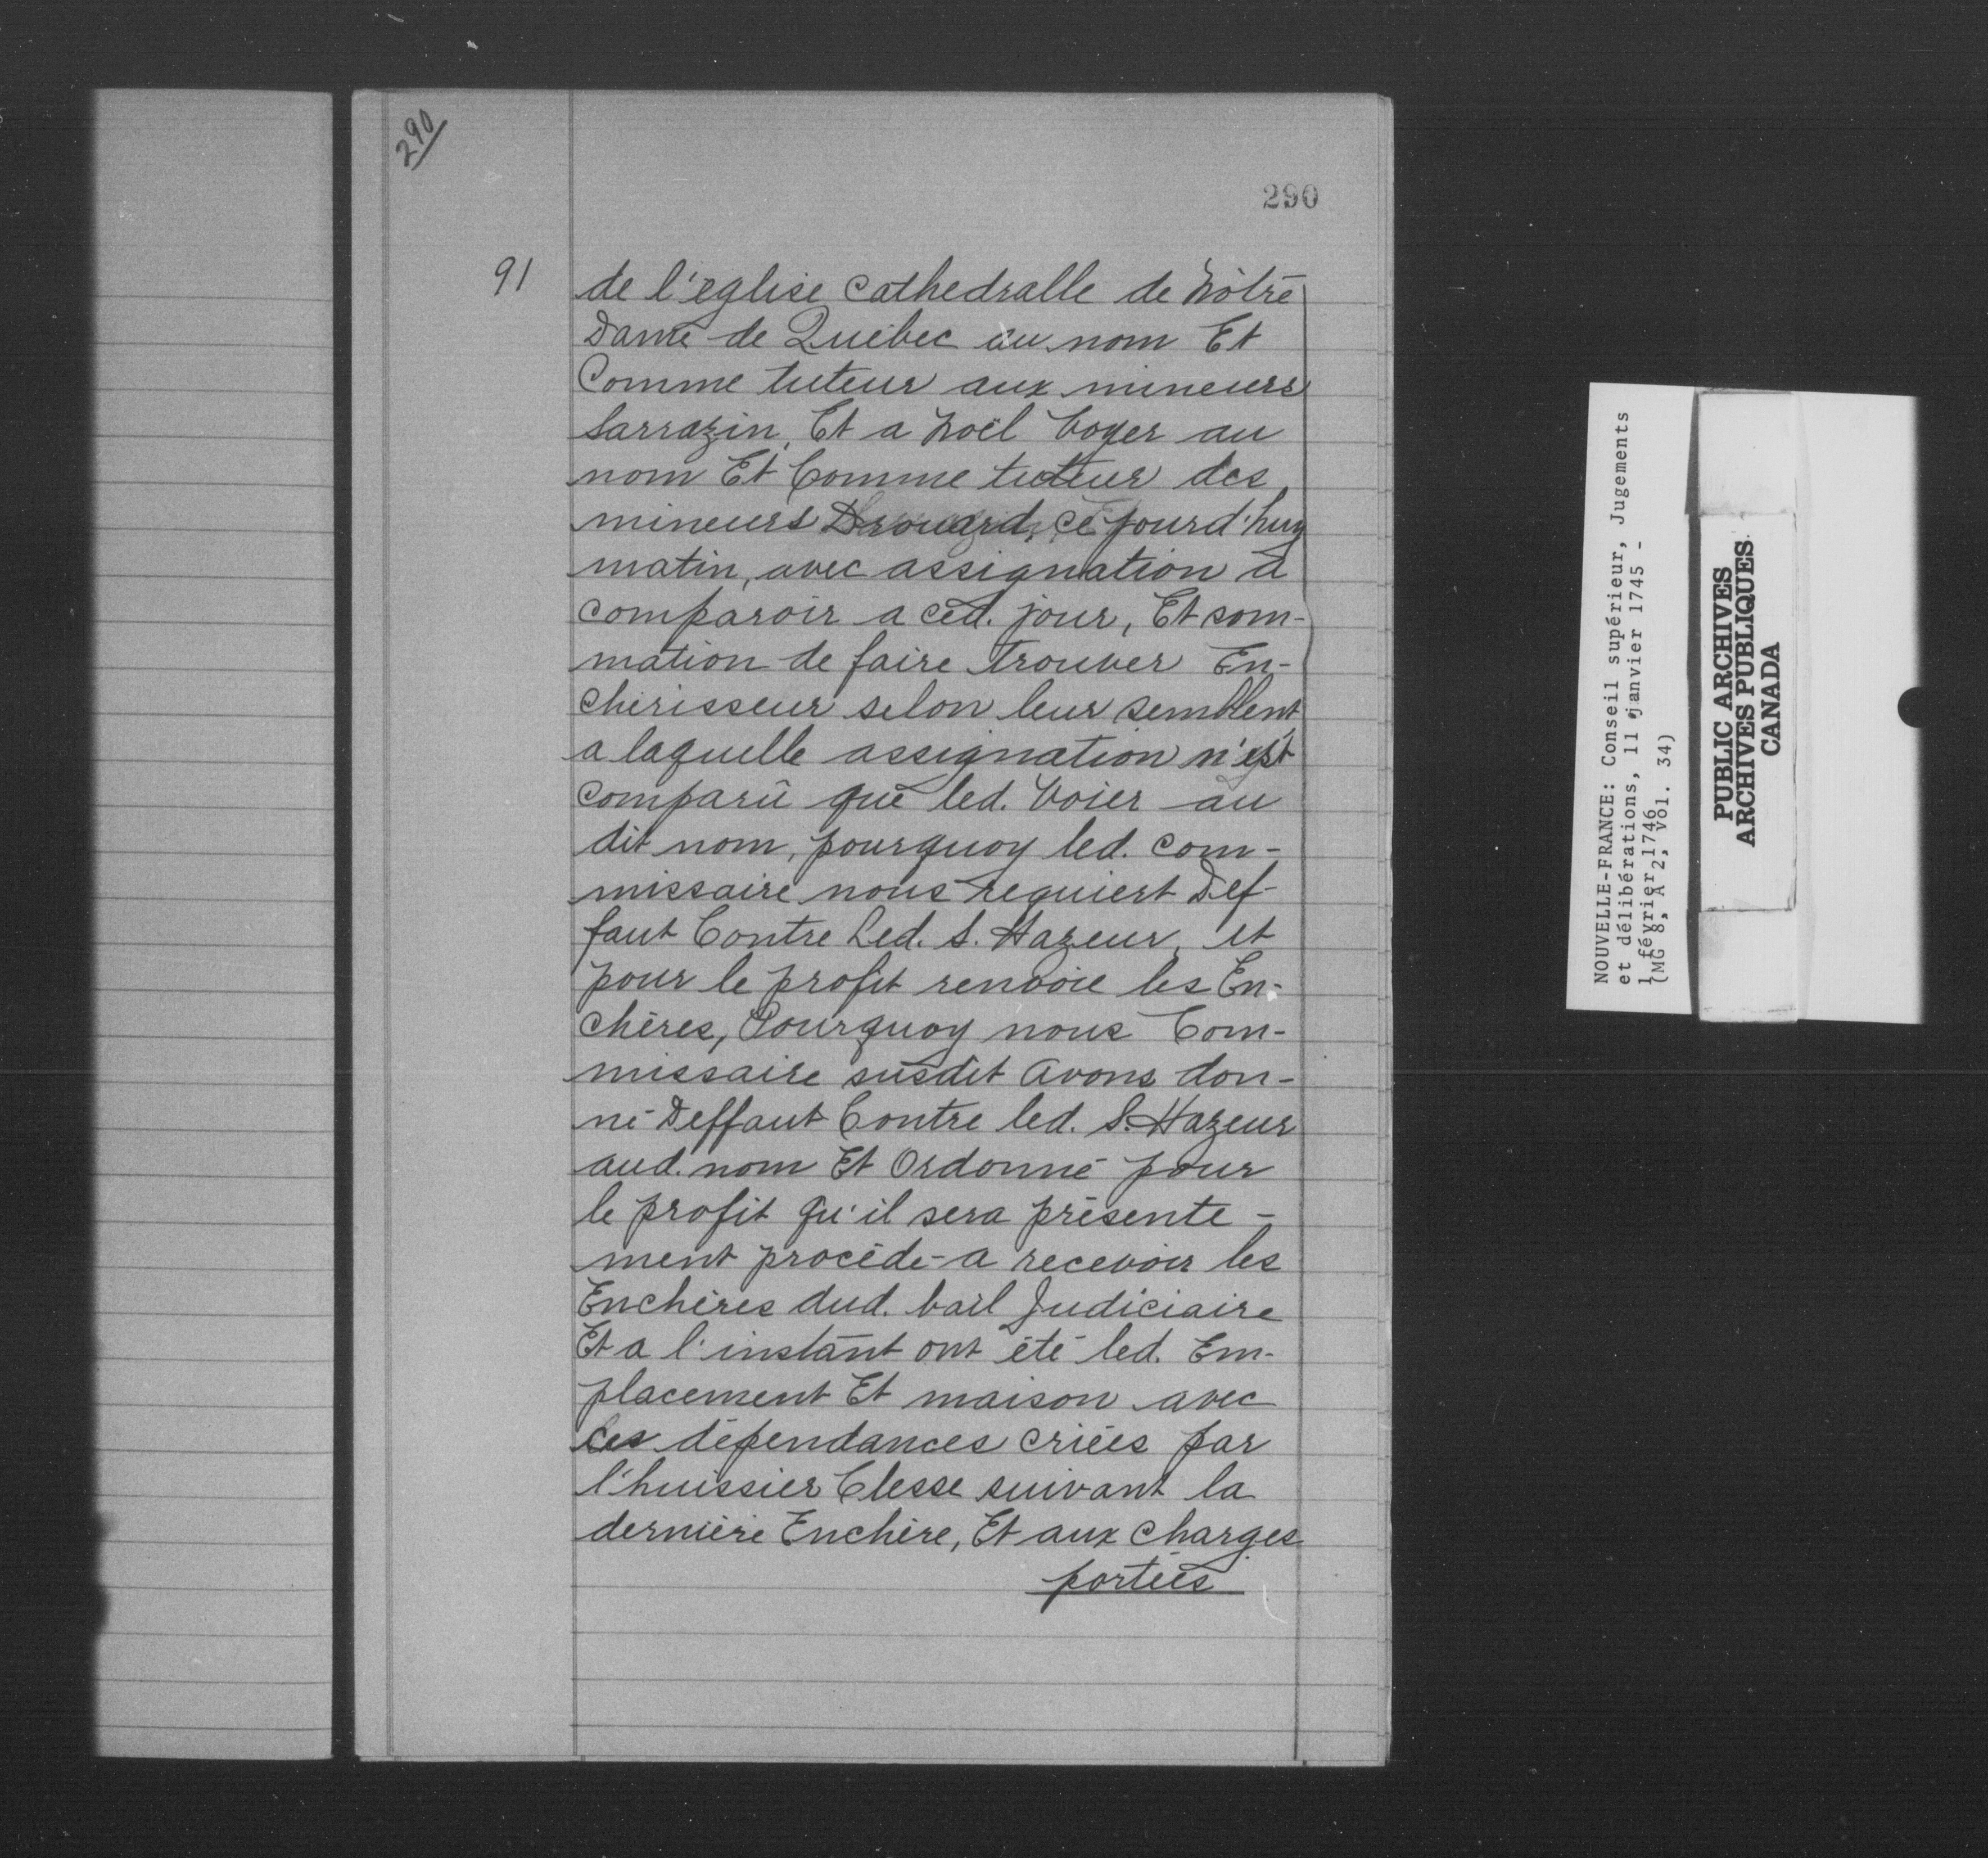 290
290
91
de l'église cathedralle de Nôtre
Dame de Québec au nom Et
Comme tuteur aux mineurs
Sarrazin, Et a Noël Voyer au
nom Et Comme tuteur des
mineurs Drouard, ce jourd'huy
matin, avec assignation à
comparoir a ced. jour, Et som-
mation de faire trouver En-
chérisseur selon leur semblent
a laquelle assignation n'est
comparû que led. Voier au
dit nom, pourquoy led. com-
missaire nous requiert Def-
faut Contre Led. S. Hazeur, et
pour le profit renvoie les En-
chères, Pourquoy nous Com-
missaire susdit avons don-
né Deffaut Contre led. S. Hazeur
aud. nom Et Ordonné pour
le profit qu'il sera présente-
ment procédé a recevoir les
Enchères dud. bail Judiciaire
Et a l'instant ont été led. Em-
placement Et maison avec
les dépendances criées par
l'huissier Clesse suivant la
dernière Enchère, Et aux charges
portées
NOUVELLE-FRANCE: Conseil supérieur, Jugements
et délibérations, 11 janvier 1745 -
1 février 1746
(MG 8, A 2, vol. 34)
PUBLIC ARCHIVES
ARCHIVES PUBLIQUES
CANADA